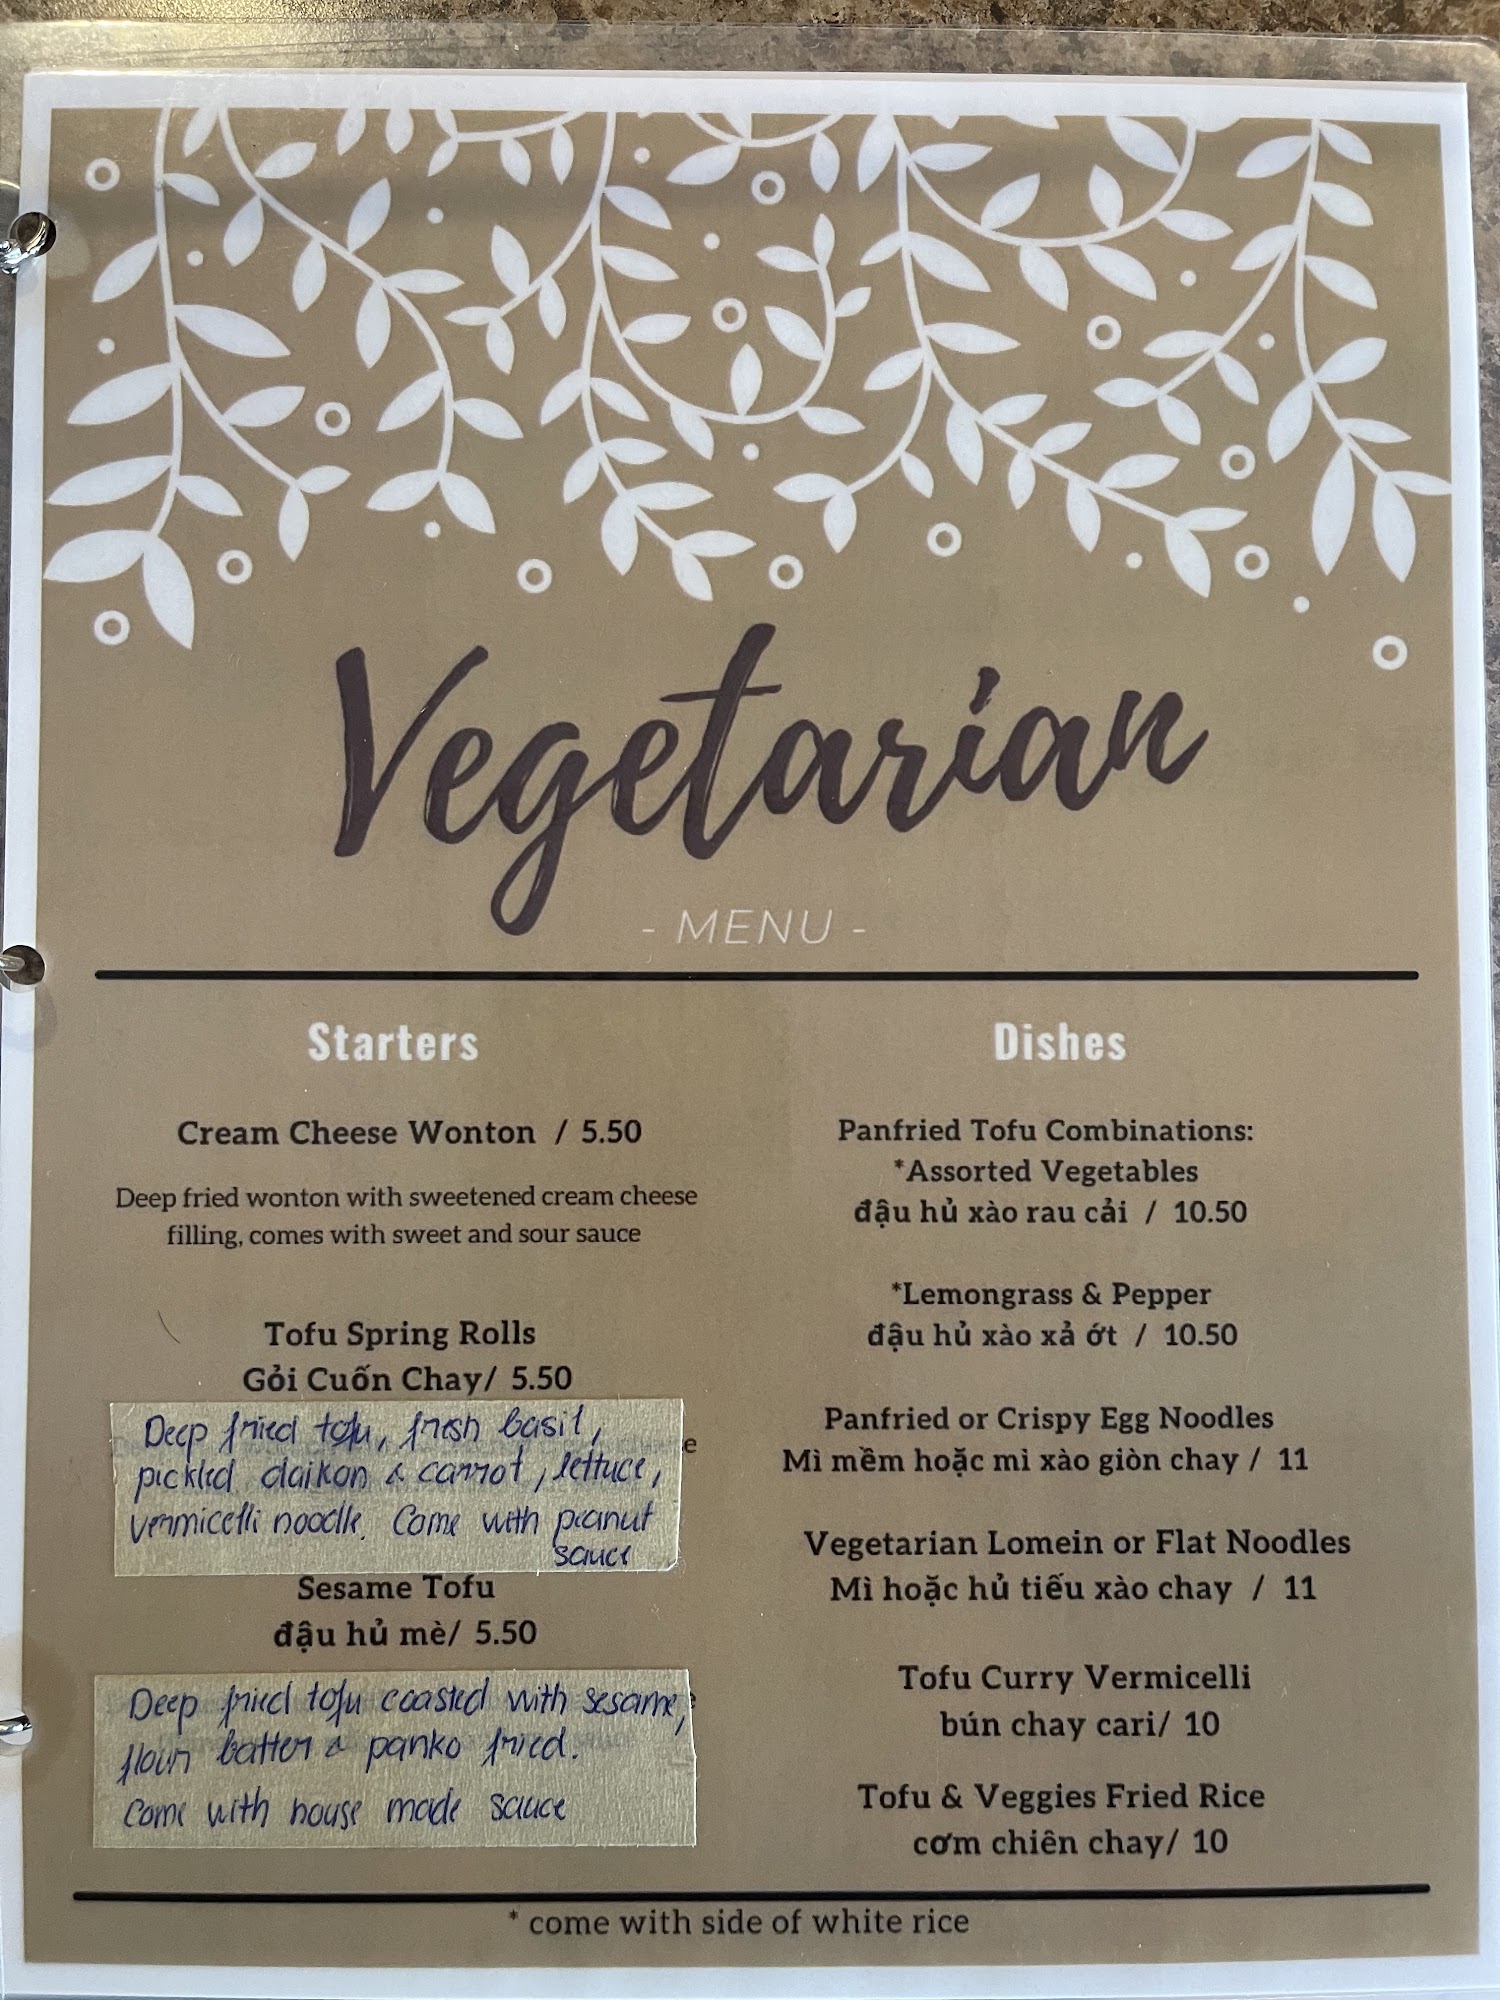 Vegetarian
- MENU -
Starters
Cream Cheese Wonton / 5.50
Deep fried wonton with sweetened cream cheese
filling, comes with sweet and sour sauce
Tofu Spring Rolls
Gỏi Cuốn Chay/ 5.50
Deep fried tofu, fresh basil,
pickled daikon & carrot, lettuce,
vermicelli noodle. Come with peanut
sauce
Sesame Tofu
đậu hủ mè/ 5.50
Deep fried tofu coasted with sesame,
flour batter & panko fried.
Come with house made sauce
Dishes
Panfried Tofu Combinations:
*Assorted Vegetables
đậu hủ xào rau cải / 10.50
*Lemongrass & Pepper
đậu hủ xào xả ớt / 10.50
Panfried or Crispy Egg Noodles
Mì mềm hoặc mì xào giòn chay / 11
Vegetarian Lomein or Flat Noodles
Mì hoặc hủ tiếu xào chay / 11
Tofu Curry Vermicelli
bún chay cari/ 10
Tofu & Veggies Fried Rice
cơm chiên chay/ 10
* come with side of white rice